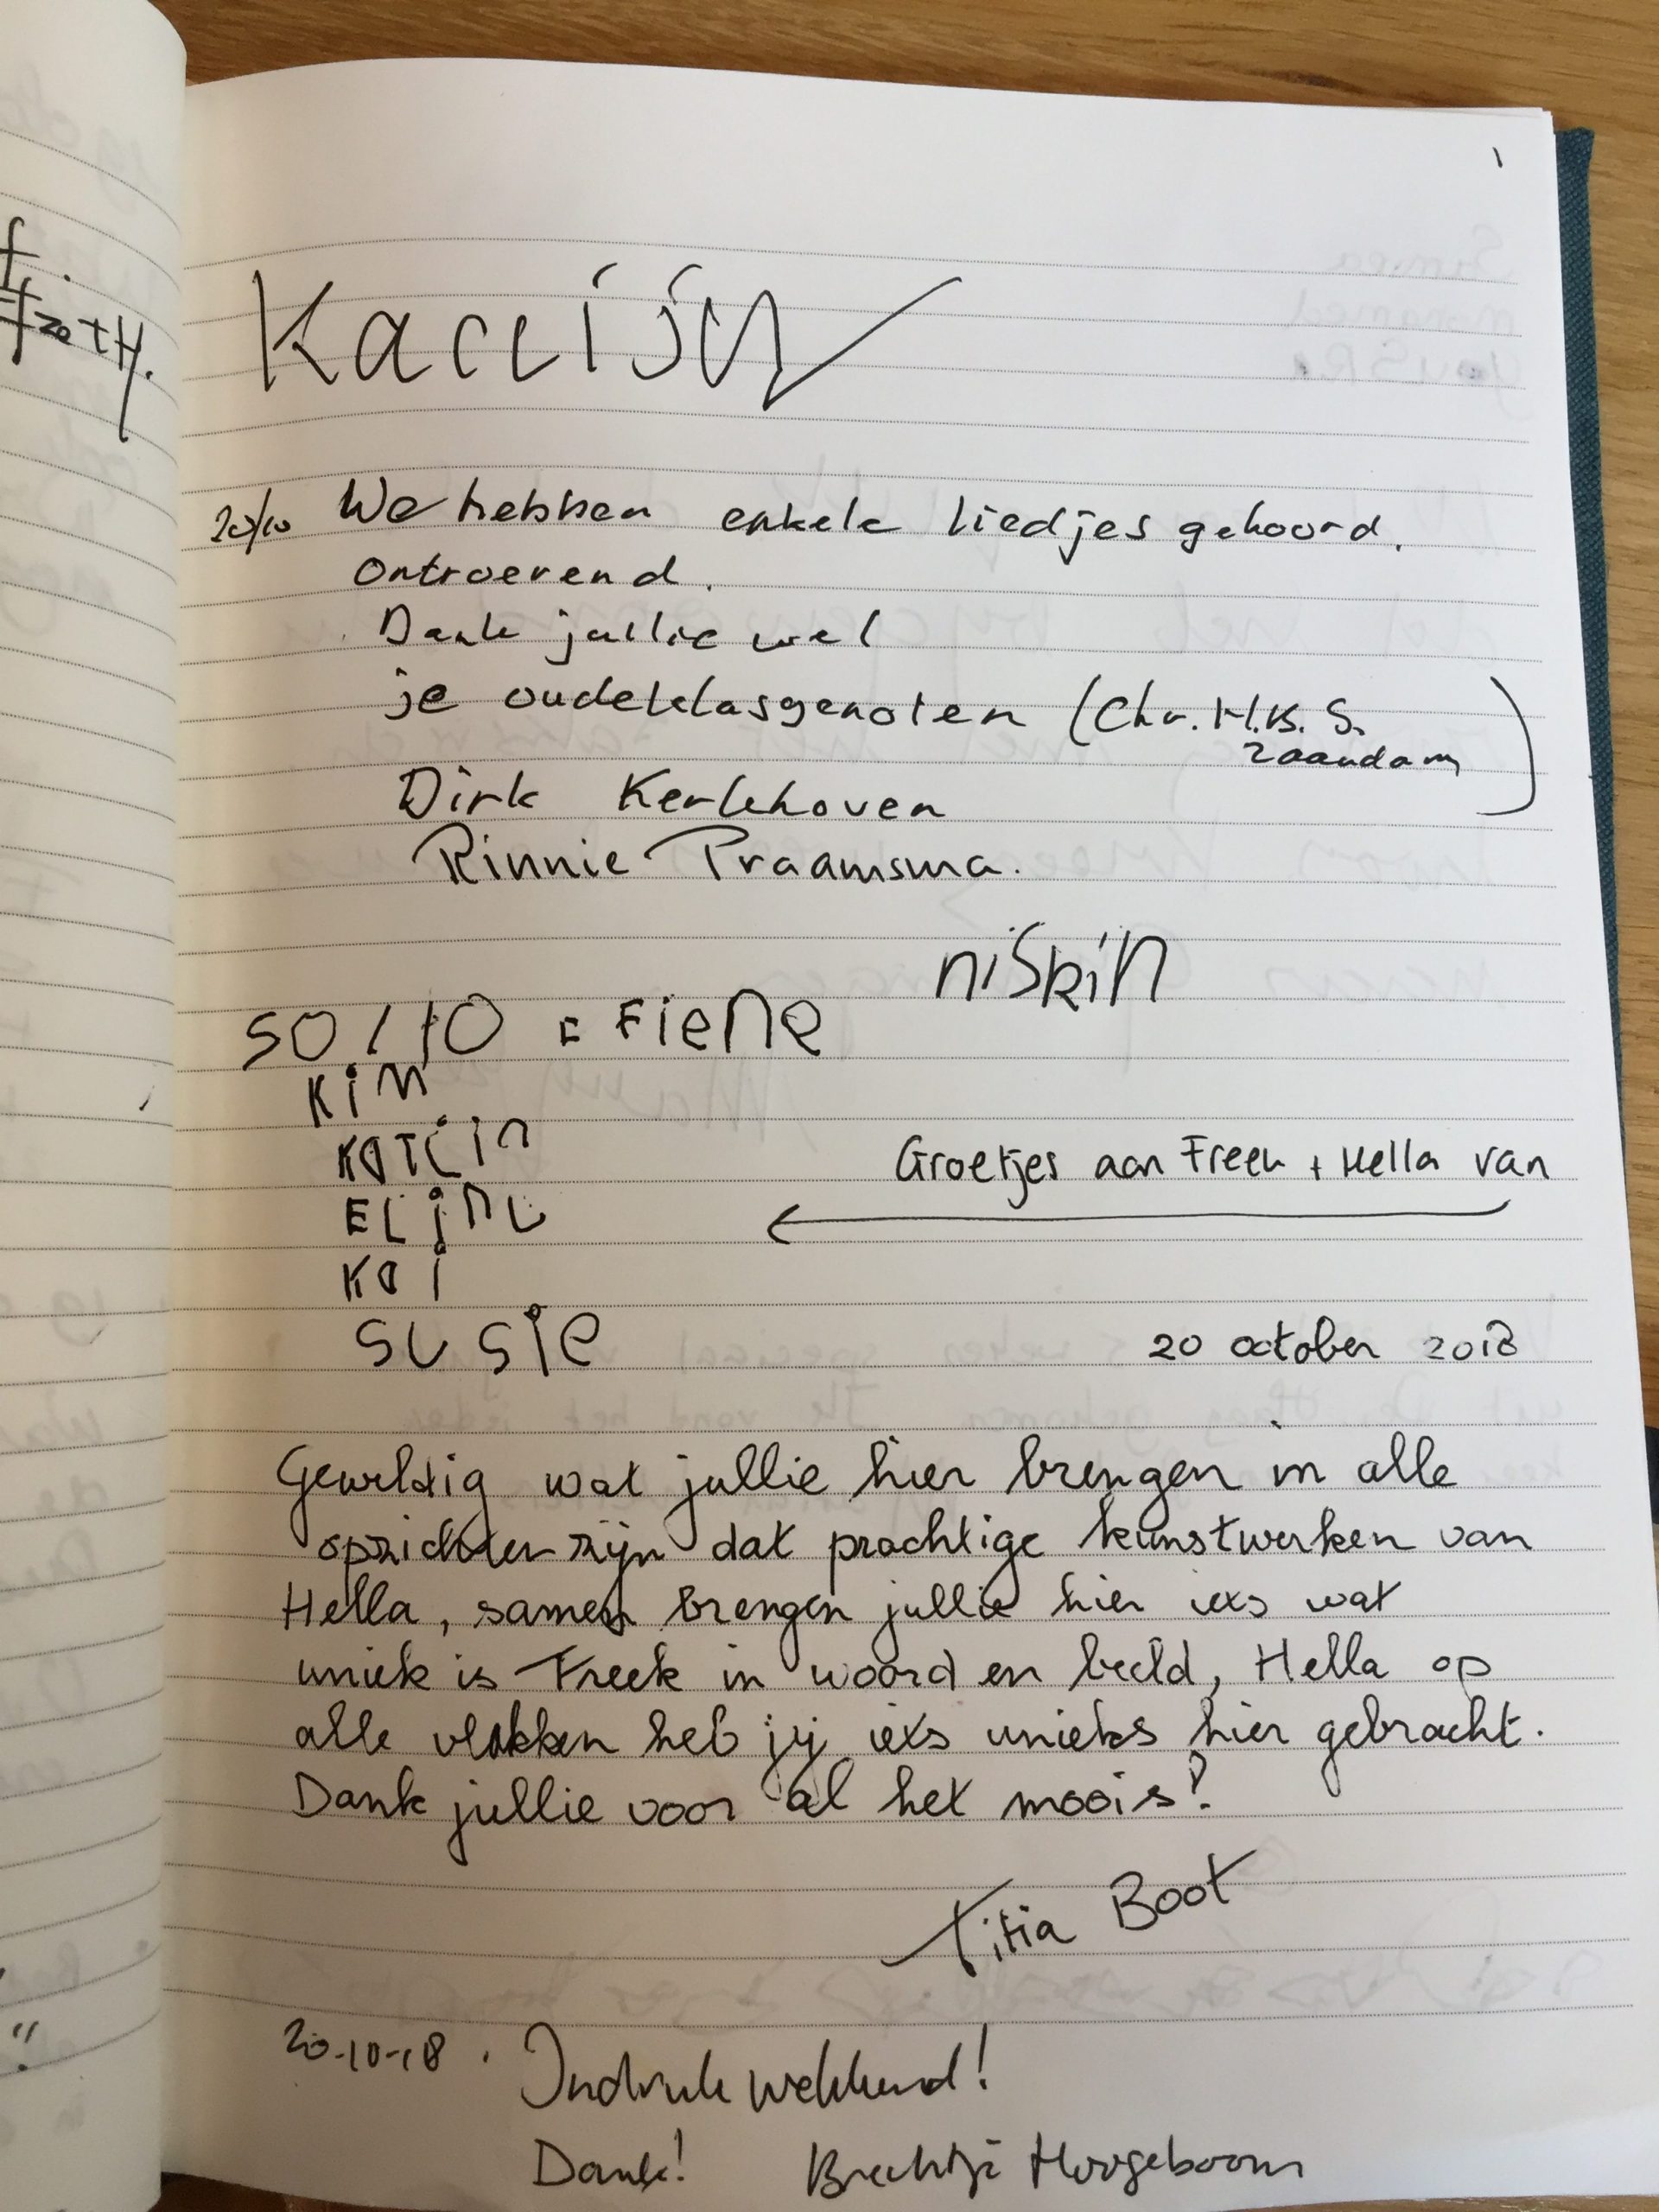 20/10 We hebben enkele liedjes gehoord.
Ontroerend.
Dank jullie wel
je oudeklasgenoten (Chr. H.B.S.
Zaandam)
Dirk Kerkhoven
Rinnie Praamsma.
niskin
50/10 : Fiene
Kim
KaTLin
ELinE
Kai
susie
Groetjes aan Freek + Hella van
20 october 2018
Geweldig wat jullie hier brengen in alle
opzichten zijn dat prachtige kunstwerken van
Hella, samen brengen jullie hier iets wat
uniek is Freek in woord en beeld, Hella op
alle vlakken heb jij iets unieks hier gebracht.
Dank jullie voor al het moois!
Titia Boot
20-10-18. Indrukwekkend!
Dank! Brechtje Hoogeboom